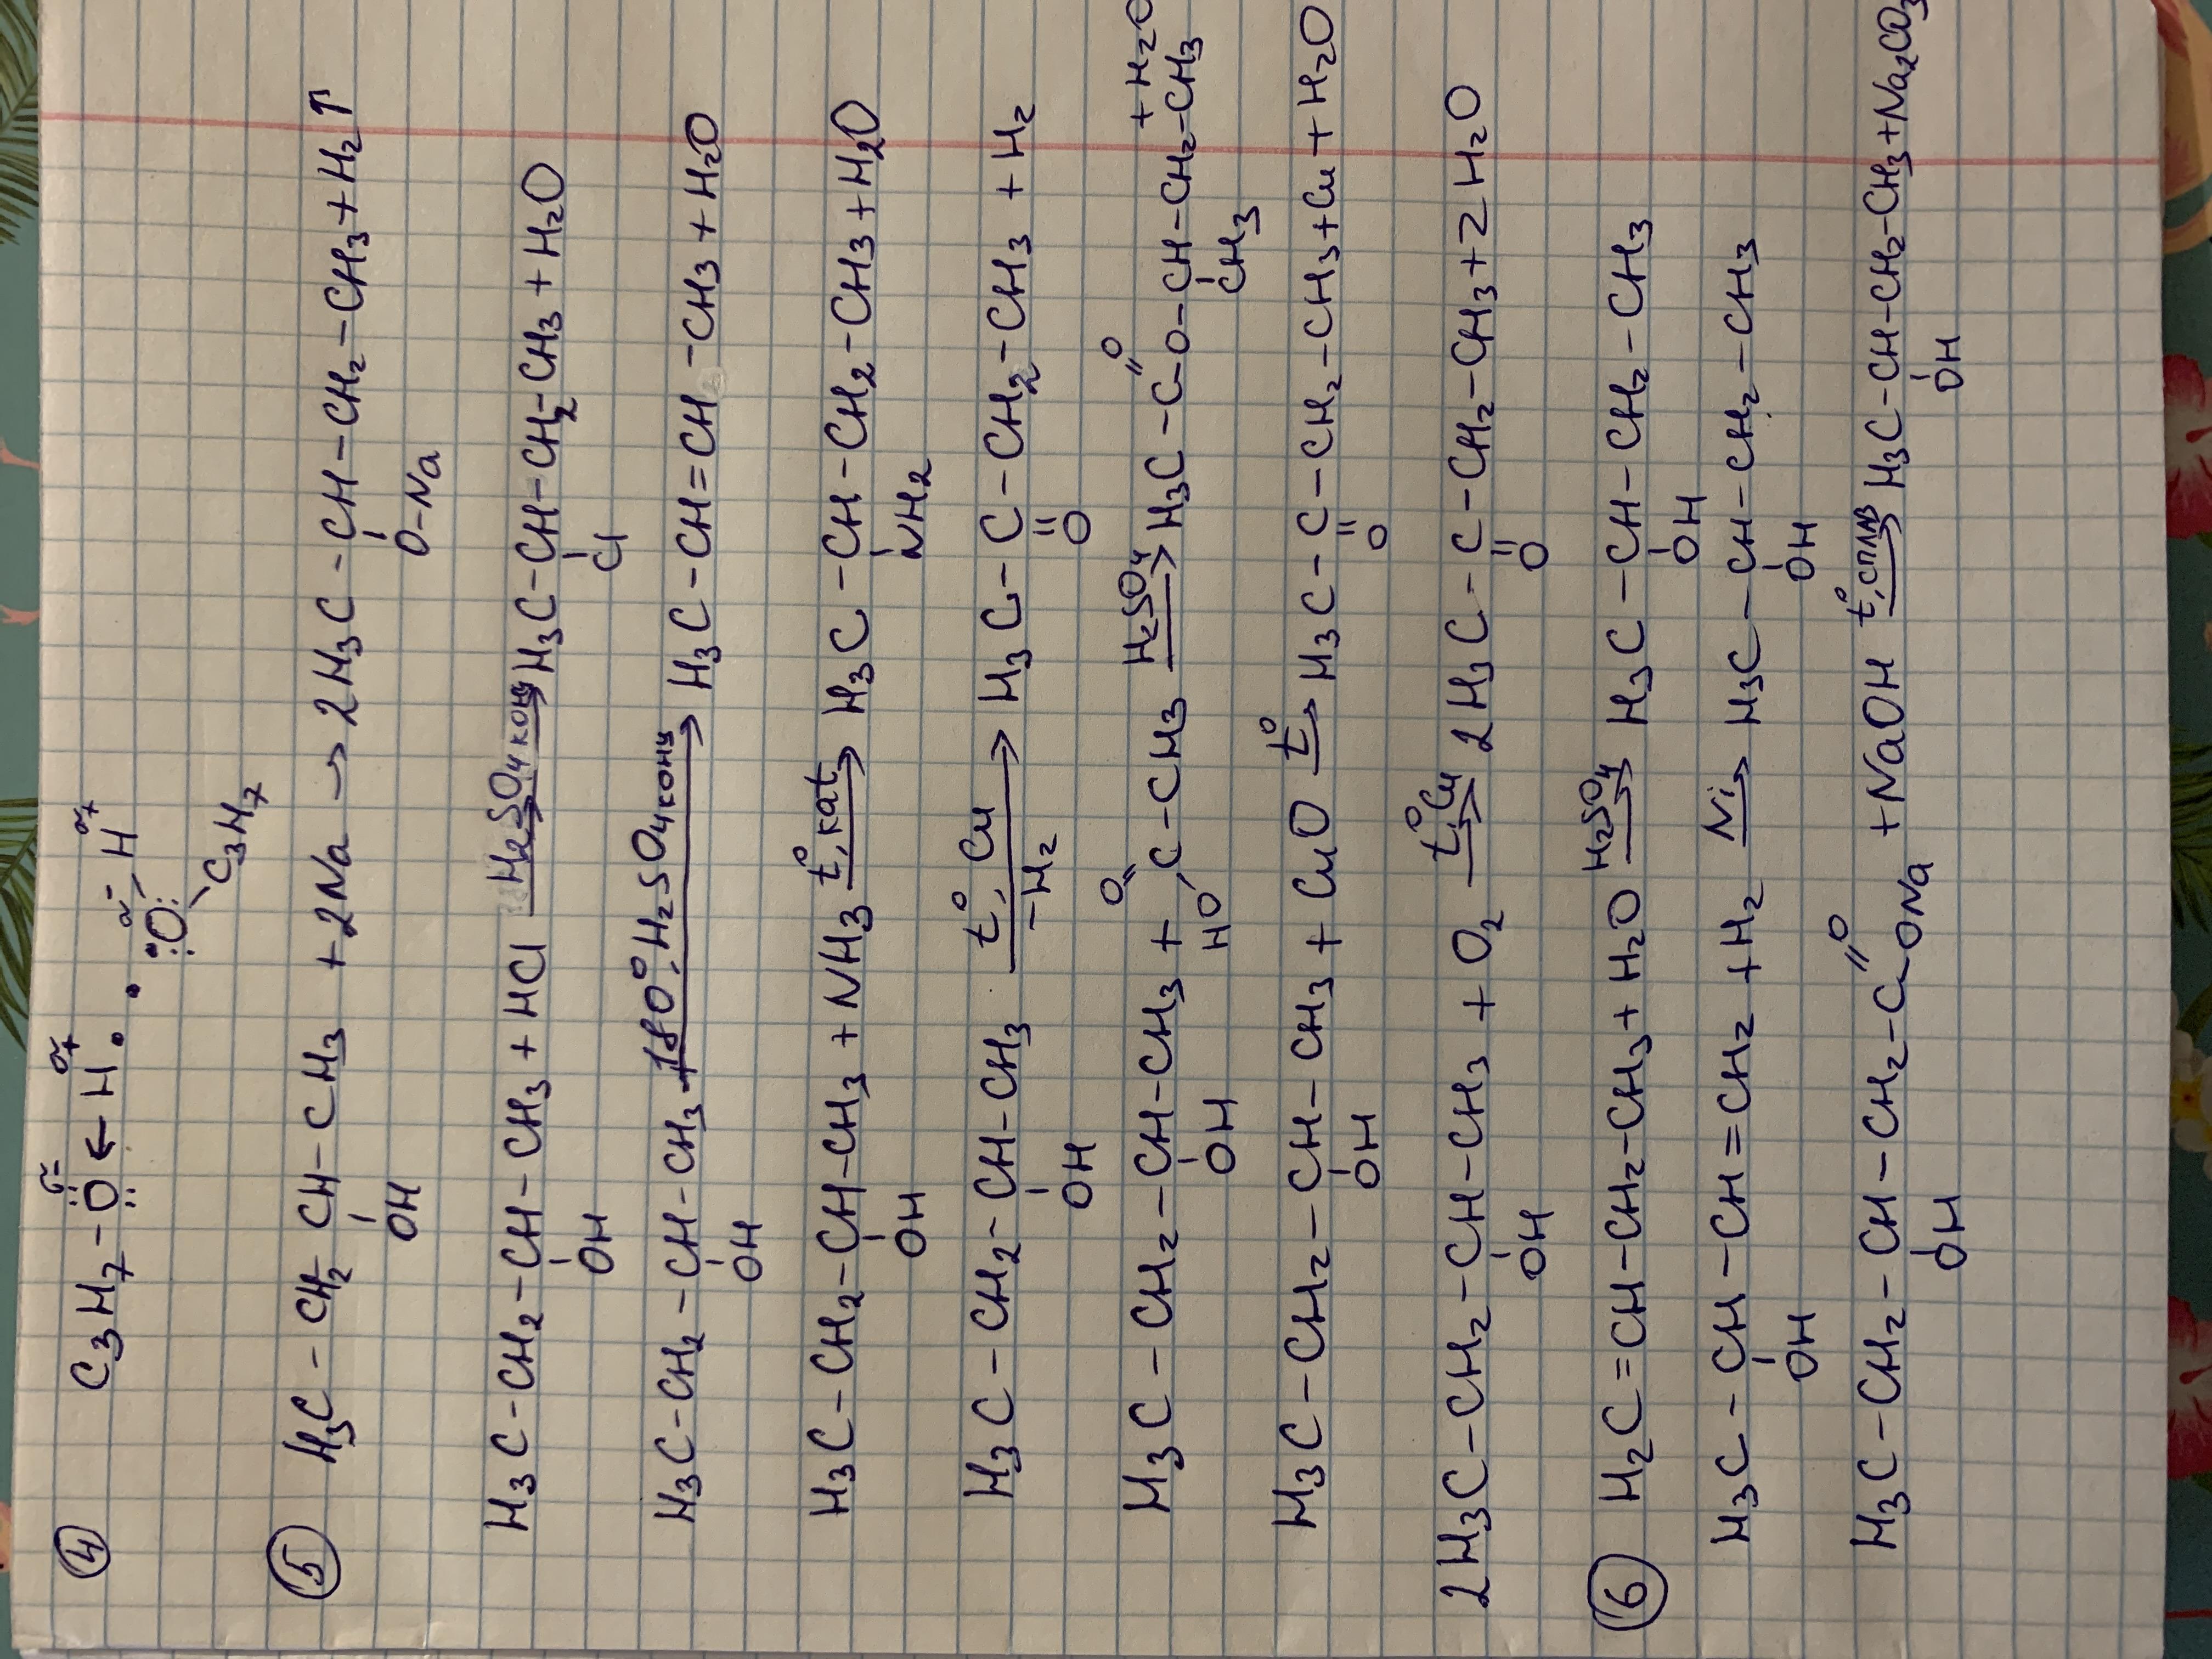 ④ C₃H₇–O←H ... :O:–H
C₃H₇
⑤ H₃C–CH₂–CH–CH₃ + 2Na → 2H₃C–CH–CH₂–CH₃ + H₂↑
OH O–Na
H₃C–CH₂–CH–CH₃ + HCl H₂SO₄ конц→ H₃C–CH–CH₂–CH₃ + H₂O
OH Cl
H₃C–CH₂–CH–CH₃ 180°, H₂SO₄ конц→ H₃C–CH=CH–CH₃ + H₂O
OH
H₃C–CH₂–CH–CH₃ + NH₃ t°, кат→ H₃C–CH–CH₂–CH₃ + H₂O
OH NH₂
H₃C–CH₂–CH–CH₃ t°, Cu→ H₃C–C–CH₂–CH₃ + H₂
OH –H₂ O
H₃C–CH₂–CH–CH₃ + HO–C(=O)–CH₃ H₂SO₄→ H₃C–C(=O)–O–CH–CH₂–CH₃ + H₂O
OH CH₃
H₃C–CH₂–CH–CH₃ + CuO t°→ H₃C–C–CH₂–CH₃ + Cu + H₂O
OH O
2H₃C–CH₂–CH–CH₃ + O₂ t°, Cu→ 2H₃C–C–CH₂–CH₃ + 2H₂O
OH O
⑥ H₂C=CH–CH₂–CH₃ + H₂O H₂SO₄→ H₃C–CH–CH₂–CH₃
OH
H₃C–CH–CH=CH₂ + H₂ Ni→ H₃C–CH–CH₂–CH₃
OH OH
H₃C–CH₂–CH–CH₂–C(=O)–ONa + NaOH t°, сплав→ H₃C–CH–CH₂–CH₃ + Na₂CO₃
OH OH